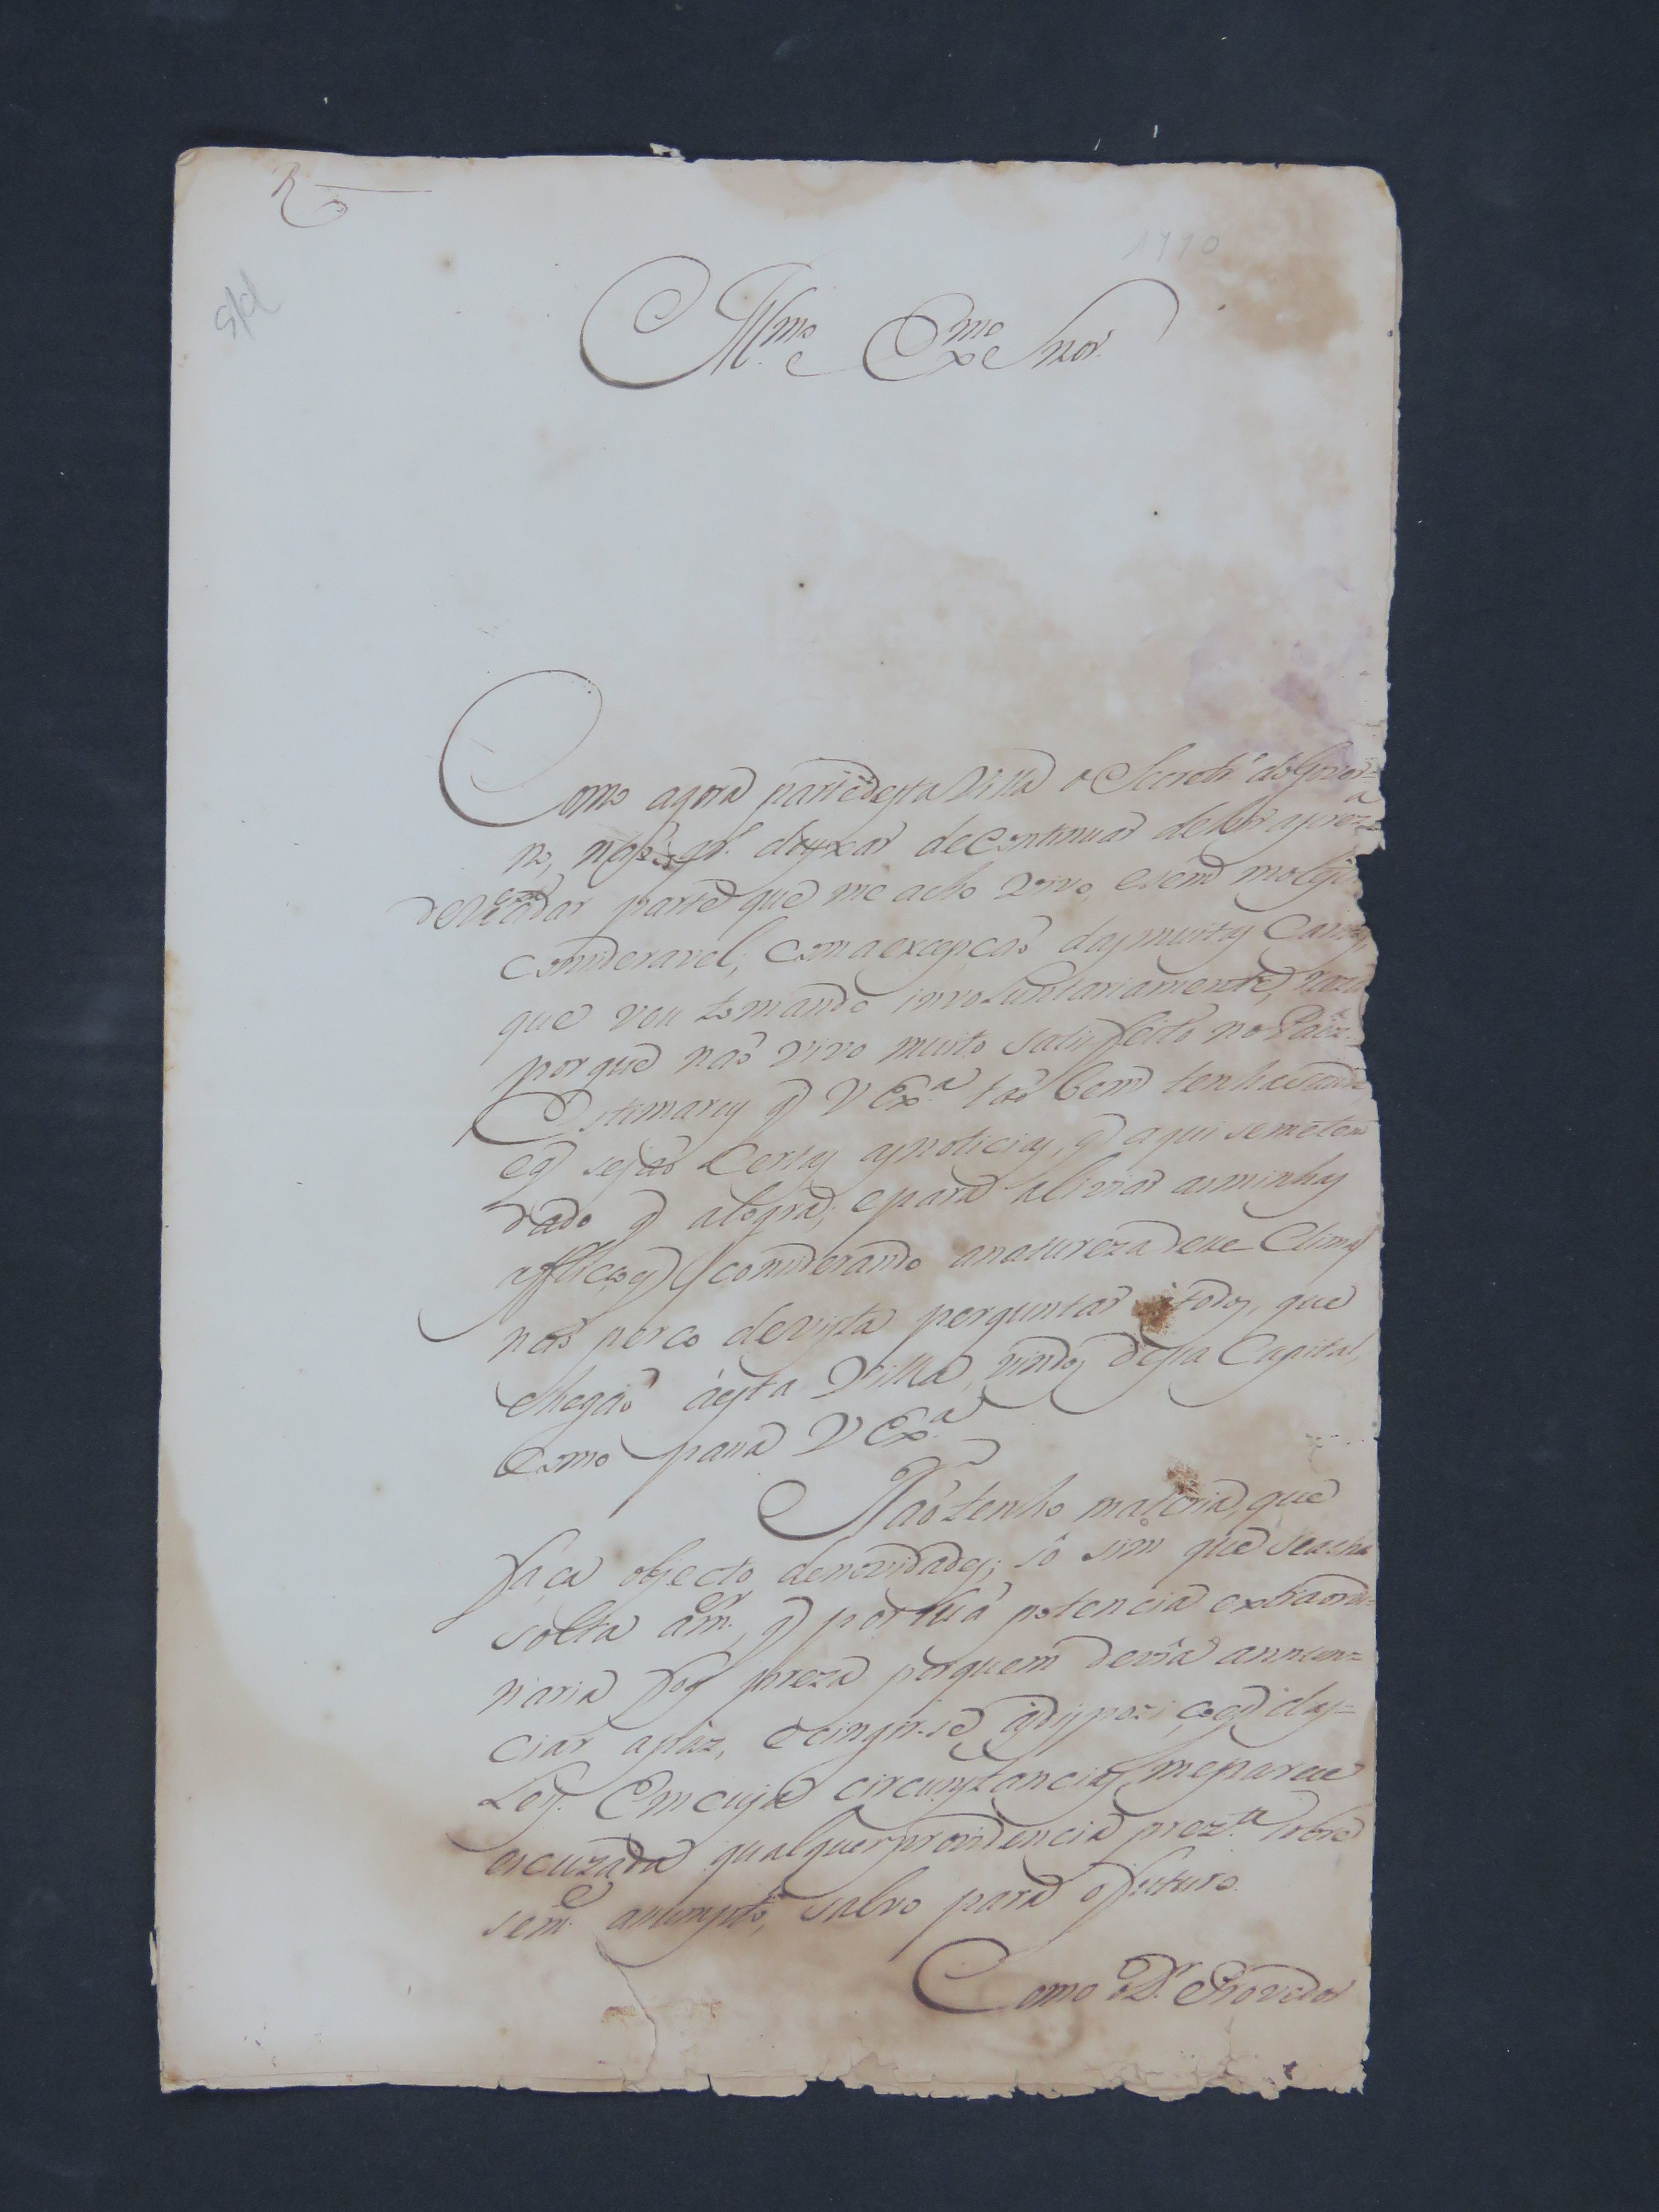 R
1770
S/d
Ill.mo e Ex.mo Snor.
Como agora parte desta Villa o Secretr.o do Gover=
no, não q.r deyxar de continuar
de V Ex.a dar parte que me acho vivo, e sem molestia
consideravel, com a excepcaõ das muitas
que vou tomando involuntariamente, razaõ
porque naõ vivo muito satisfeito no Paiz.
Estimarey q V Ex.a taõ bem tenha saude
e q sejaõ certas as noticias, q aqui se me tem
dado q alegra; e para aliviar as minhas
afflicoes considerando a natureza desse Clima
naõ perco de vista perguntar a todos, que
chegaõ a esta Villa, vindos dessa Capital,
como passa V Ex.a
Naõ tenho materia, que
faca objecto de novidades; só sim que se acha
solta a m.er, q por huã potencia extraordi=
naria foy preza por quem devia annun=
ciar a páz, e cingir-se ás dispozicoes das
Leys. Em cujas circunstancias me parece
escuzada qualquer providencia prez.te sobre
sem.e assumpto, salvo para o futuro.
Como o D.r Provedor